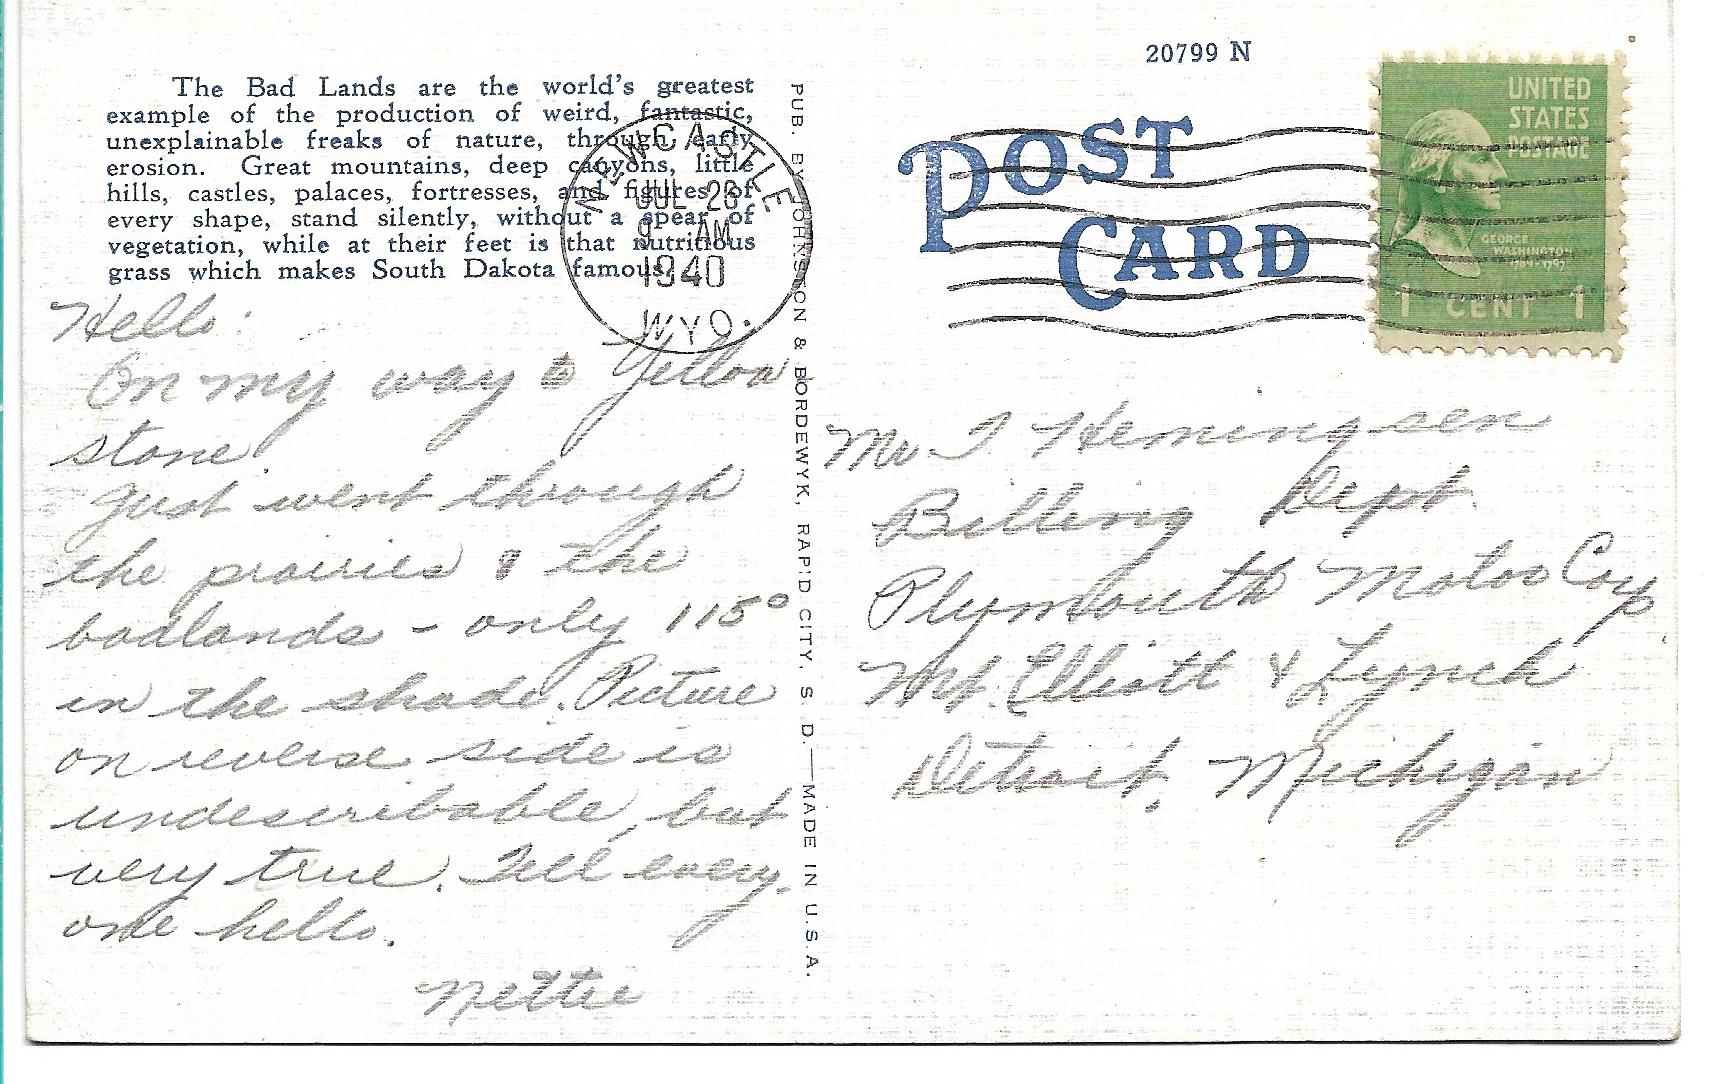 20799 N
The Bad Lands are the world's greatest
example of the production of weird, fantastic,
unexplainable freaks of nature, through early
erosion. Great mountains, deep canyons, little
hills, castles, palaces, fortresses, and figures of
every shape, stand silently, without a spear of
vegetation, while at their feet is that nutritious
grass which makes South Dakota famous.
NEWCASTLE
JUL 23
9 AM
1940
WYO.
PUB. BY JOHNSTON & BORDEWYK, RAPID CITY, S. D.—MADE IN U.S.A.
POST
CARD
UNITED
STATES
POSTAGE
GEORGE
WASHINGTON
1789-1797
1 CENT 1
Hello:
On my way to Yellow
stone.
Just went through
the prairies & the
badlands - only 115°
in the shade. Picture
on reverse side is
undescribable, but
very true. Tell every-
one hello.
Nettie
Mr I Hemingsen
Billing Dept.
Plymouth Motor Corp.
Mt. Elliott & Lynch
Detroit, Michigan